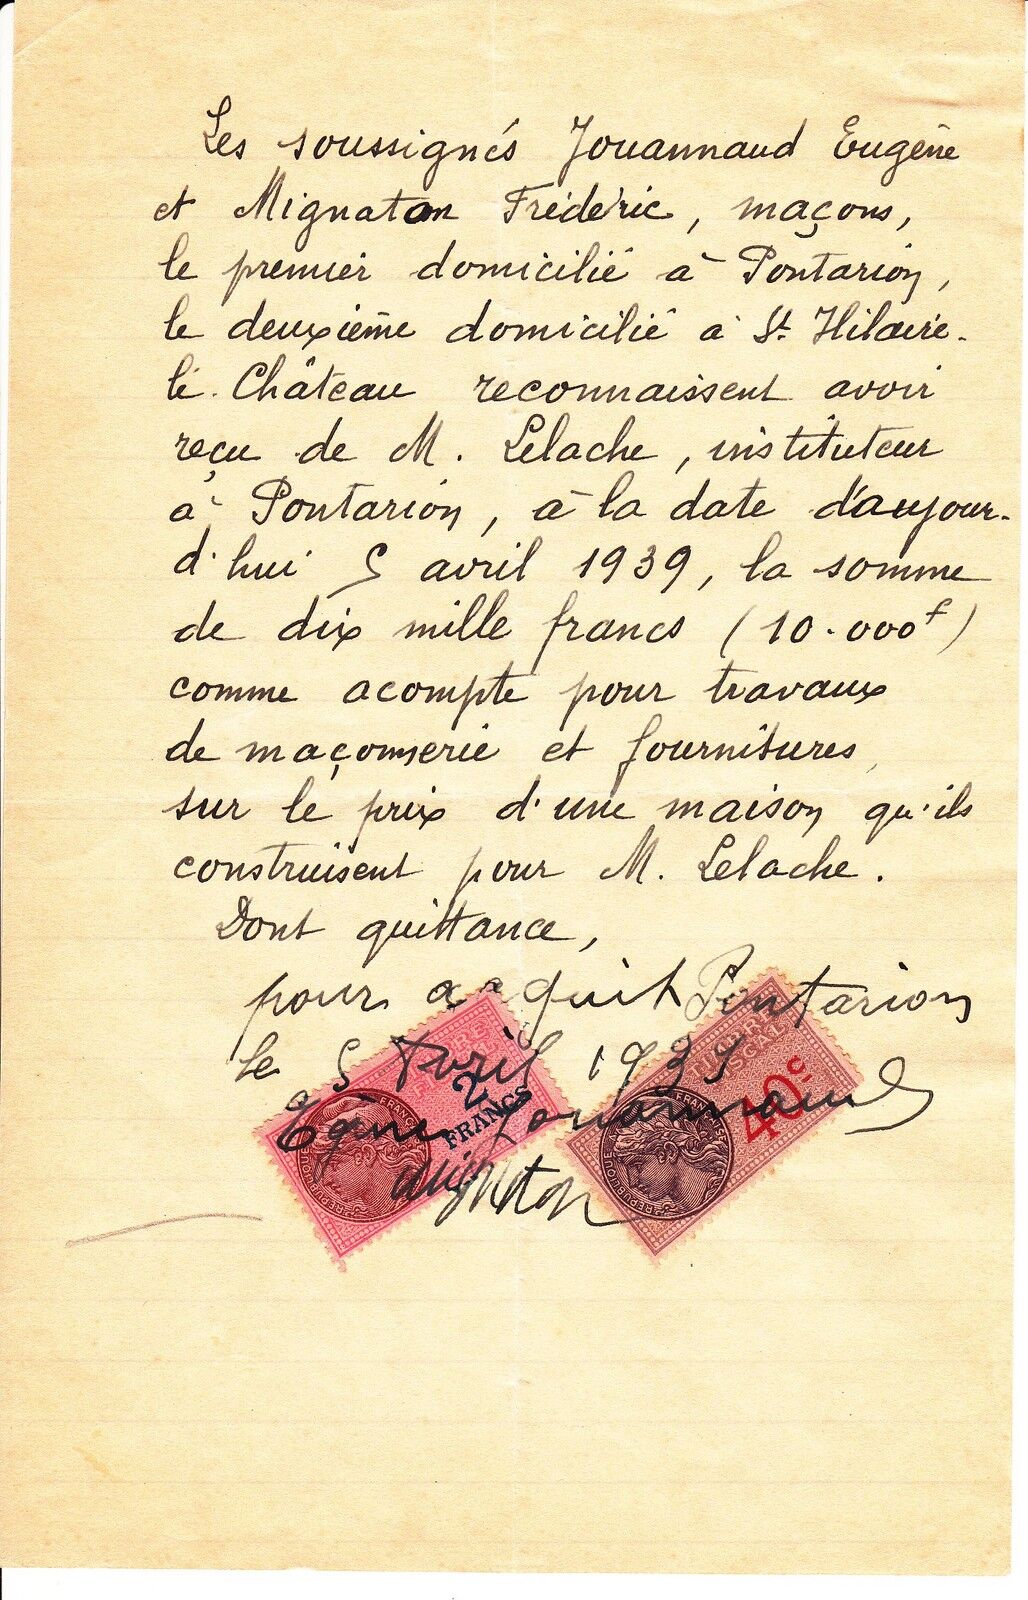 Les soussignés Jouannaud Eugène
et Mignaton Frédéric, maçons,
le premier domicilié à Pontarion,
le deuxième domicilié à St Hilaire-
le-Château reconnaissent avoir
reçu de M. Lelache, instituteur
à Pontarion, à la date d'aujour-
d'hui 5 avril 1939, la somme
de dix mille francs (10.000f)
comme acompte pour travaux
de maçonnerie et fournitures,
sur le prix d'une maison qu'ils
construisent pour M. Lelache.
Dont quittance,
pour acquit Pontarion
le 5 Avril 1939
Jouannaud
Mignaton
2 FRANCS
TIMBRE FISCAL
40c